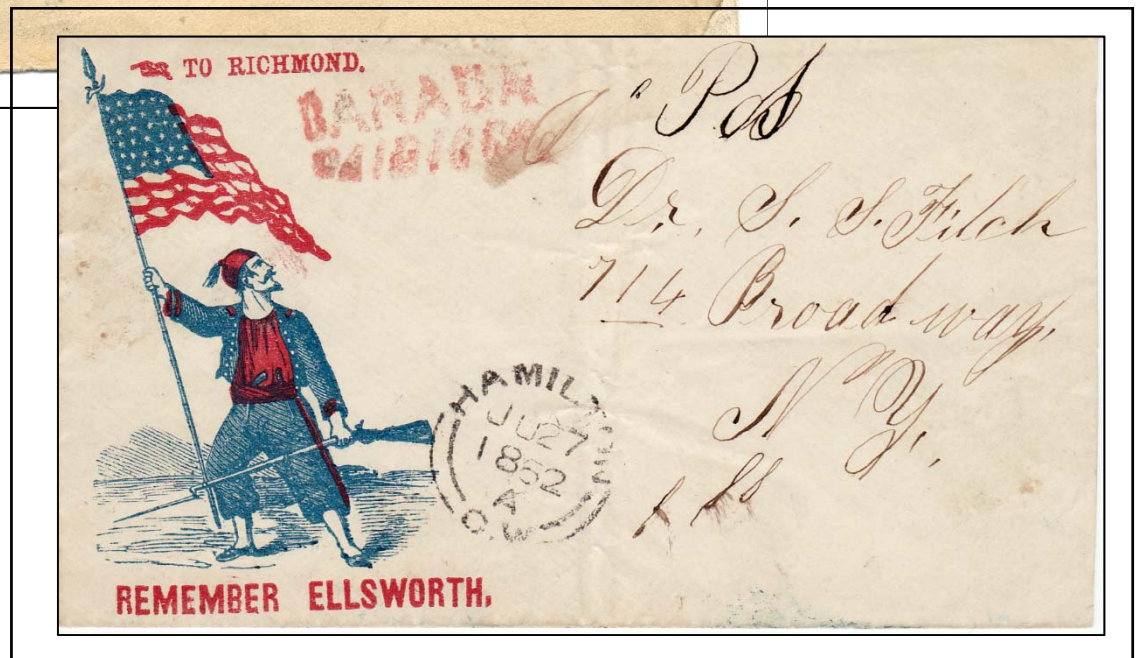 TO RICHMOND.
CANADA
Pd
Dr. S. S. Fitch
714 Broadway,
N Y.
HAMILTON
JU 27
1852
A
C.W.
REMEMBER ELLSWORTH,